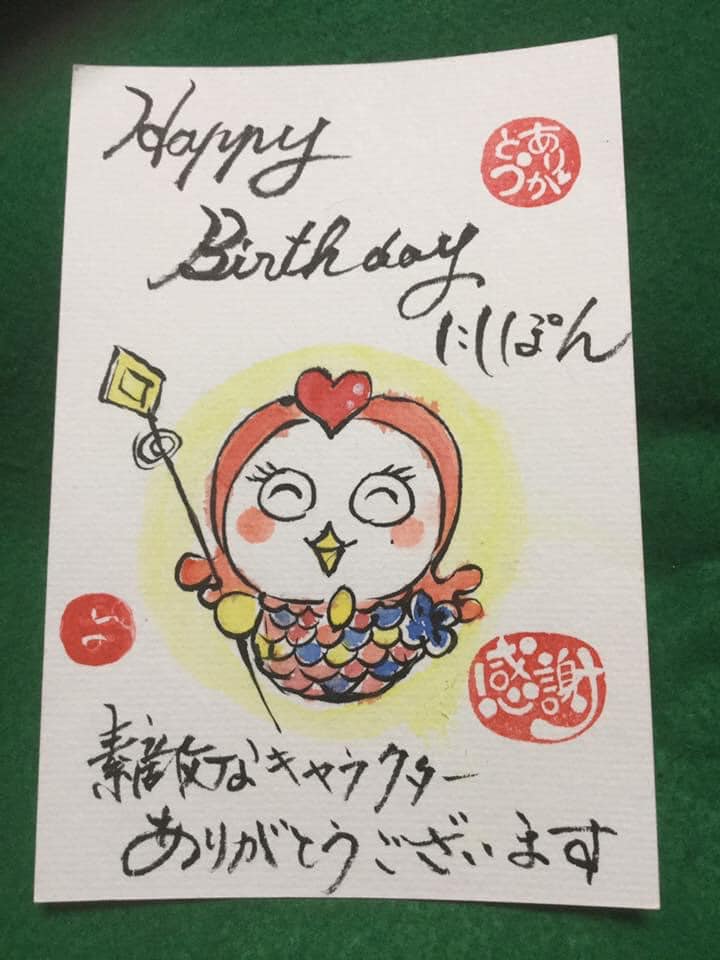 Happy
ありが
とう
Birthday
にしぽん
感謝
素敵なキャラクター
ありがとうございます